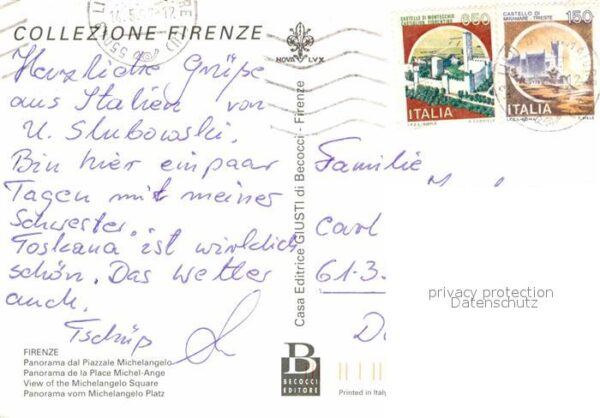 COLLEZIONE FIRENZE
NOVA LVX
CASTELLO DI MONTECCHIO
CASTIGLION FIORENTINO
650
ITALIA
CASTELLO DI
MIRAMARE-TRIESTE
150
ITALIA
Herzliche Grüße
aus Italien von
U. Slubowski.
Bin hier ein paar
Tagen mit meiner
Schwester.
Toskana ist wirklich
schön. Das Wetter
auch.
Tschüß
Casa Editrice GIUSTI di Becocci - Firenze
Familie
Carl
61-3
privacy protection
Datenschutz
FIRENZE
Panorama dal Piazzale Michelangelo
Panorama de la Place Michel-Ange
View of the Michelangelo Square
Panorama vom Michelangelo Platz
B
BECOCCI
EDITORE
Printed in Italy